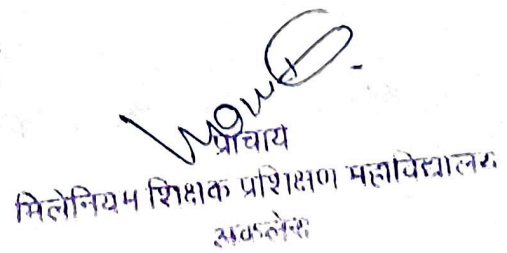 प्राचार्य
मिलेनियम शिक्षक प्रशिक्षण महाविद्यालय